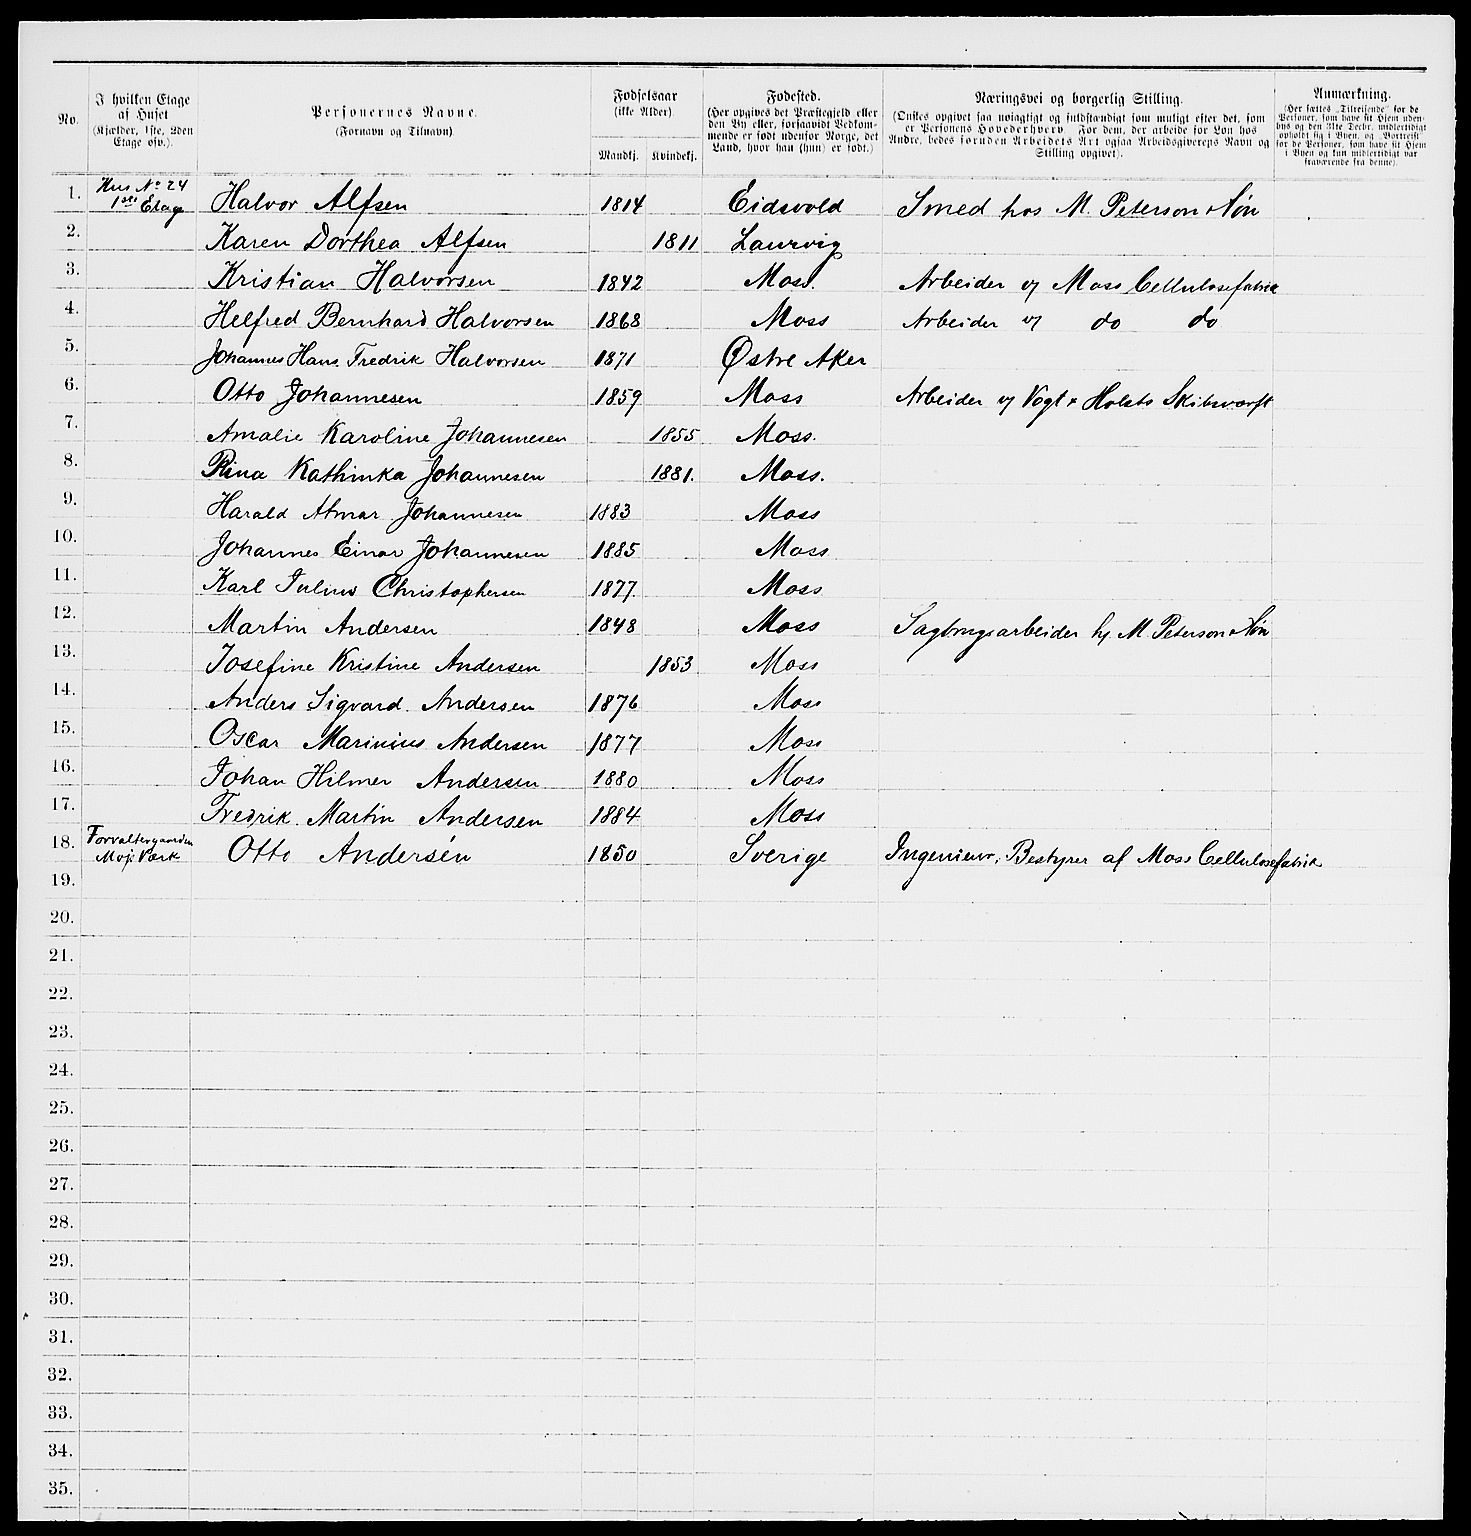 No.
I hvilken Etage
af Huset
(Kjælder, 1ste, 2den
Etage osv.).
Personernes Navne.
(Fornavn og Tilnavn)
Fødselsaar
(ikke Alder)
Mandkj. Kvindekj.
Fødested.
(Her opgives det Præstegjeld eller
den By eller, forsaavidt Vedkom-
mende er født udenfor Norge, det
Land, hvor han (hun) er født.)
Næringsvei og borgerlig Stilling.
(Ønskes opgivet saa nøiagtigt og fuldstændigt som muligt efter det, som
er Personens Hovederhverv. For dem, der arbeide for Løn hos
Andre, bedes foruden Arbeidets Art ogsaa Arbeidsgiverens Navn og
Stilling opgivet).
Anmærkning.
(Her sættes „Tilreisende“ for de
Personer, som have sit Hjem uden-
bys og den 31te Decbr. midlertidigt
opholdt sig i Byen, og „Bortreist“
for de Personer, som have sit Hjem
i Byen og kun midlertidigt var
fraværende fra denne).
1. Hus No 24 1ste Etage Halvor Alfsen 1814 Eidsvold Smed hos M. Peterson & Søn
2. Karen Dorthea Alfsen 1811 Laurvig
3. Kristian Halvorsen 1842 Moss. Arbeider v/ Moss Cellulosefabrik
4. Helfred Bernhard Halvorsen 1868 Moss Arbeider v/ do do
5. Johannes Hans Fredrik Halvorsen 1871 Østre Aker
6. Otto Johannesen 1859 Moss Arbeider v/ Vogt & Holsts Skibsværft
7. Amalie Karoline Johannesen 1855 Moss.
8. Rina Kathinka Johannesen 1881. Moss.
9. Harald Atmar Johannesen 1883 Moss
10. Johannes Einar Johannesen 1885 Moss
11. Karl Julius Christophersen 1877. Moss
12. Martin Andersen 1848 Moss Sagbrugsarbeider hj. M Peterson & Søn
13. Josefine Kristine Andersen 1853 Moss
14. Anders Sigvard. Andersen 1876 Moss
15. Oscar Marinius Andersen 1877 Moss
16. Johan Hilmer Andersen 1880 Moss
17. Fredrik. Martin Andersen 1884 Moss
18. Forvaltergaarden Værk Otto Andersén 1850 Sverige Ingenieur, Bestyrer af Moss Cellulosefabrik
19.
20.
21.
22.
23.
24.
25.
26.
27.
28.
29.
30.
31.
32.
33.
34.
35.